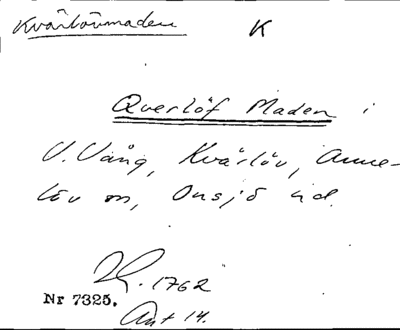 Kvärlövmaden K
Querlöf Maden i
V. Vång, Kvärlöv, Anne-
löv sn, Onsjö hd.
1762
Nr 7325.
Akt 14.